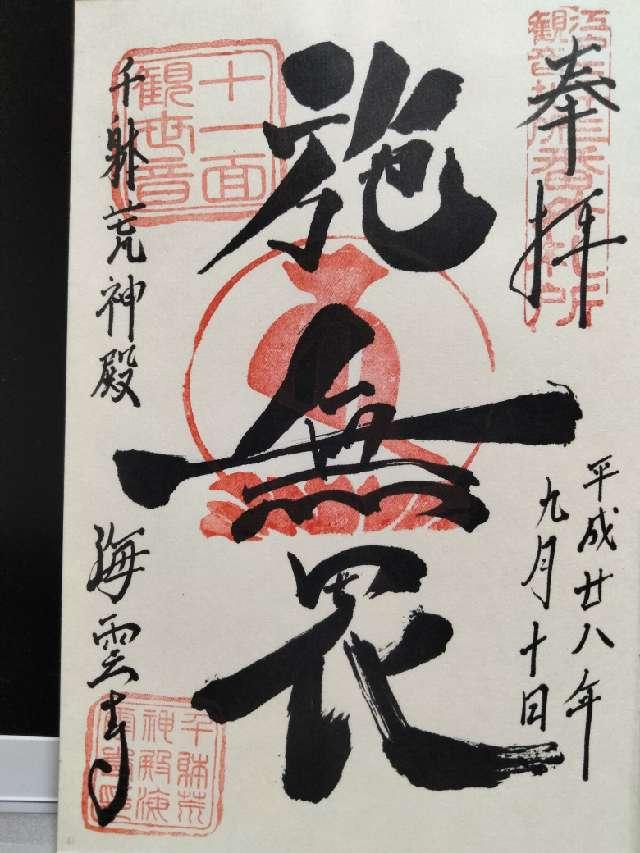 奉拝
平成廿八年
九月十日
施無畏
千躰荒神殿
海雲寺
十一面
観世音
千躰荒
神殿海